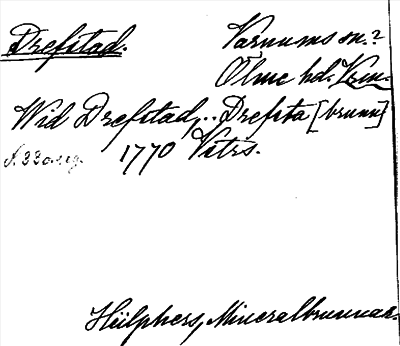 Drefstad. Varnums sn.?
Ölme hd. Vrm.
Wid Drefstad,.. Drefsta [brunn]
1770 Vitrs.
Hülphers, Mineralbrunnar.